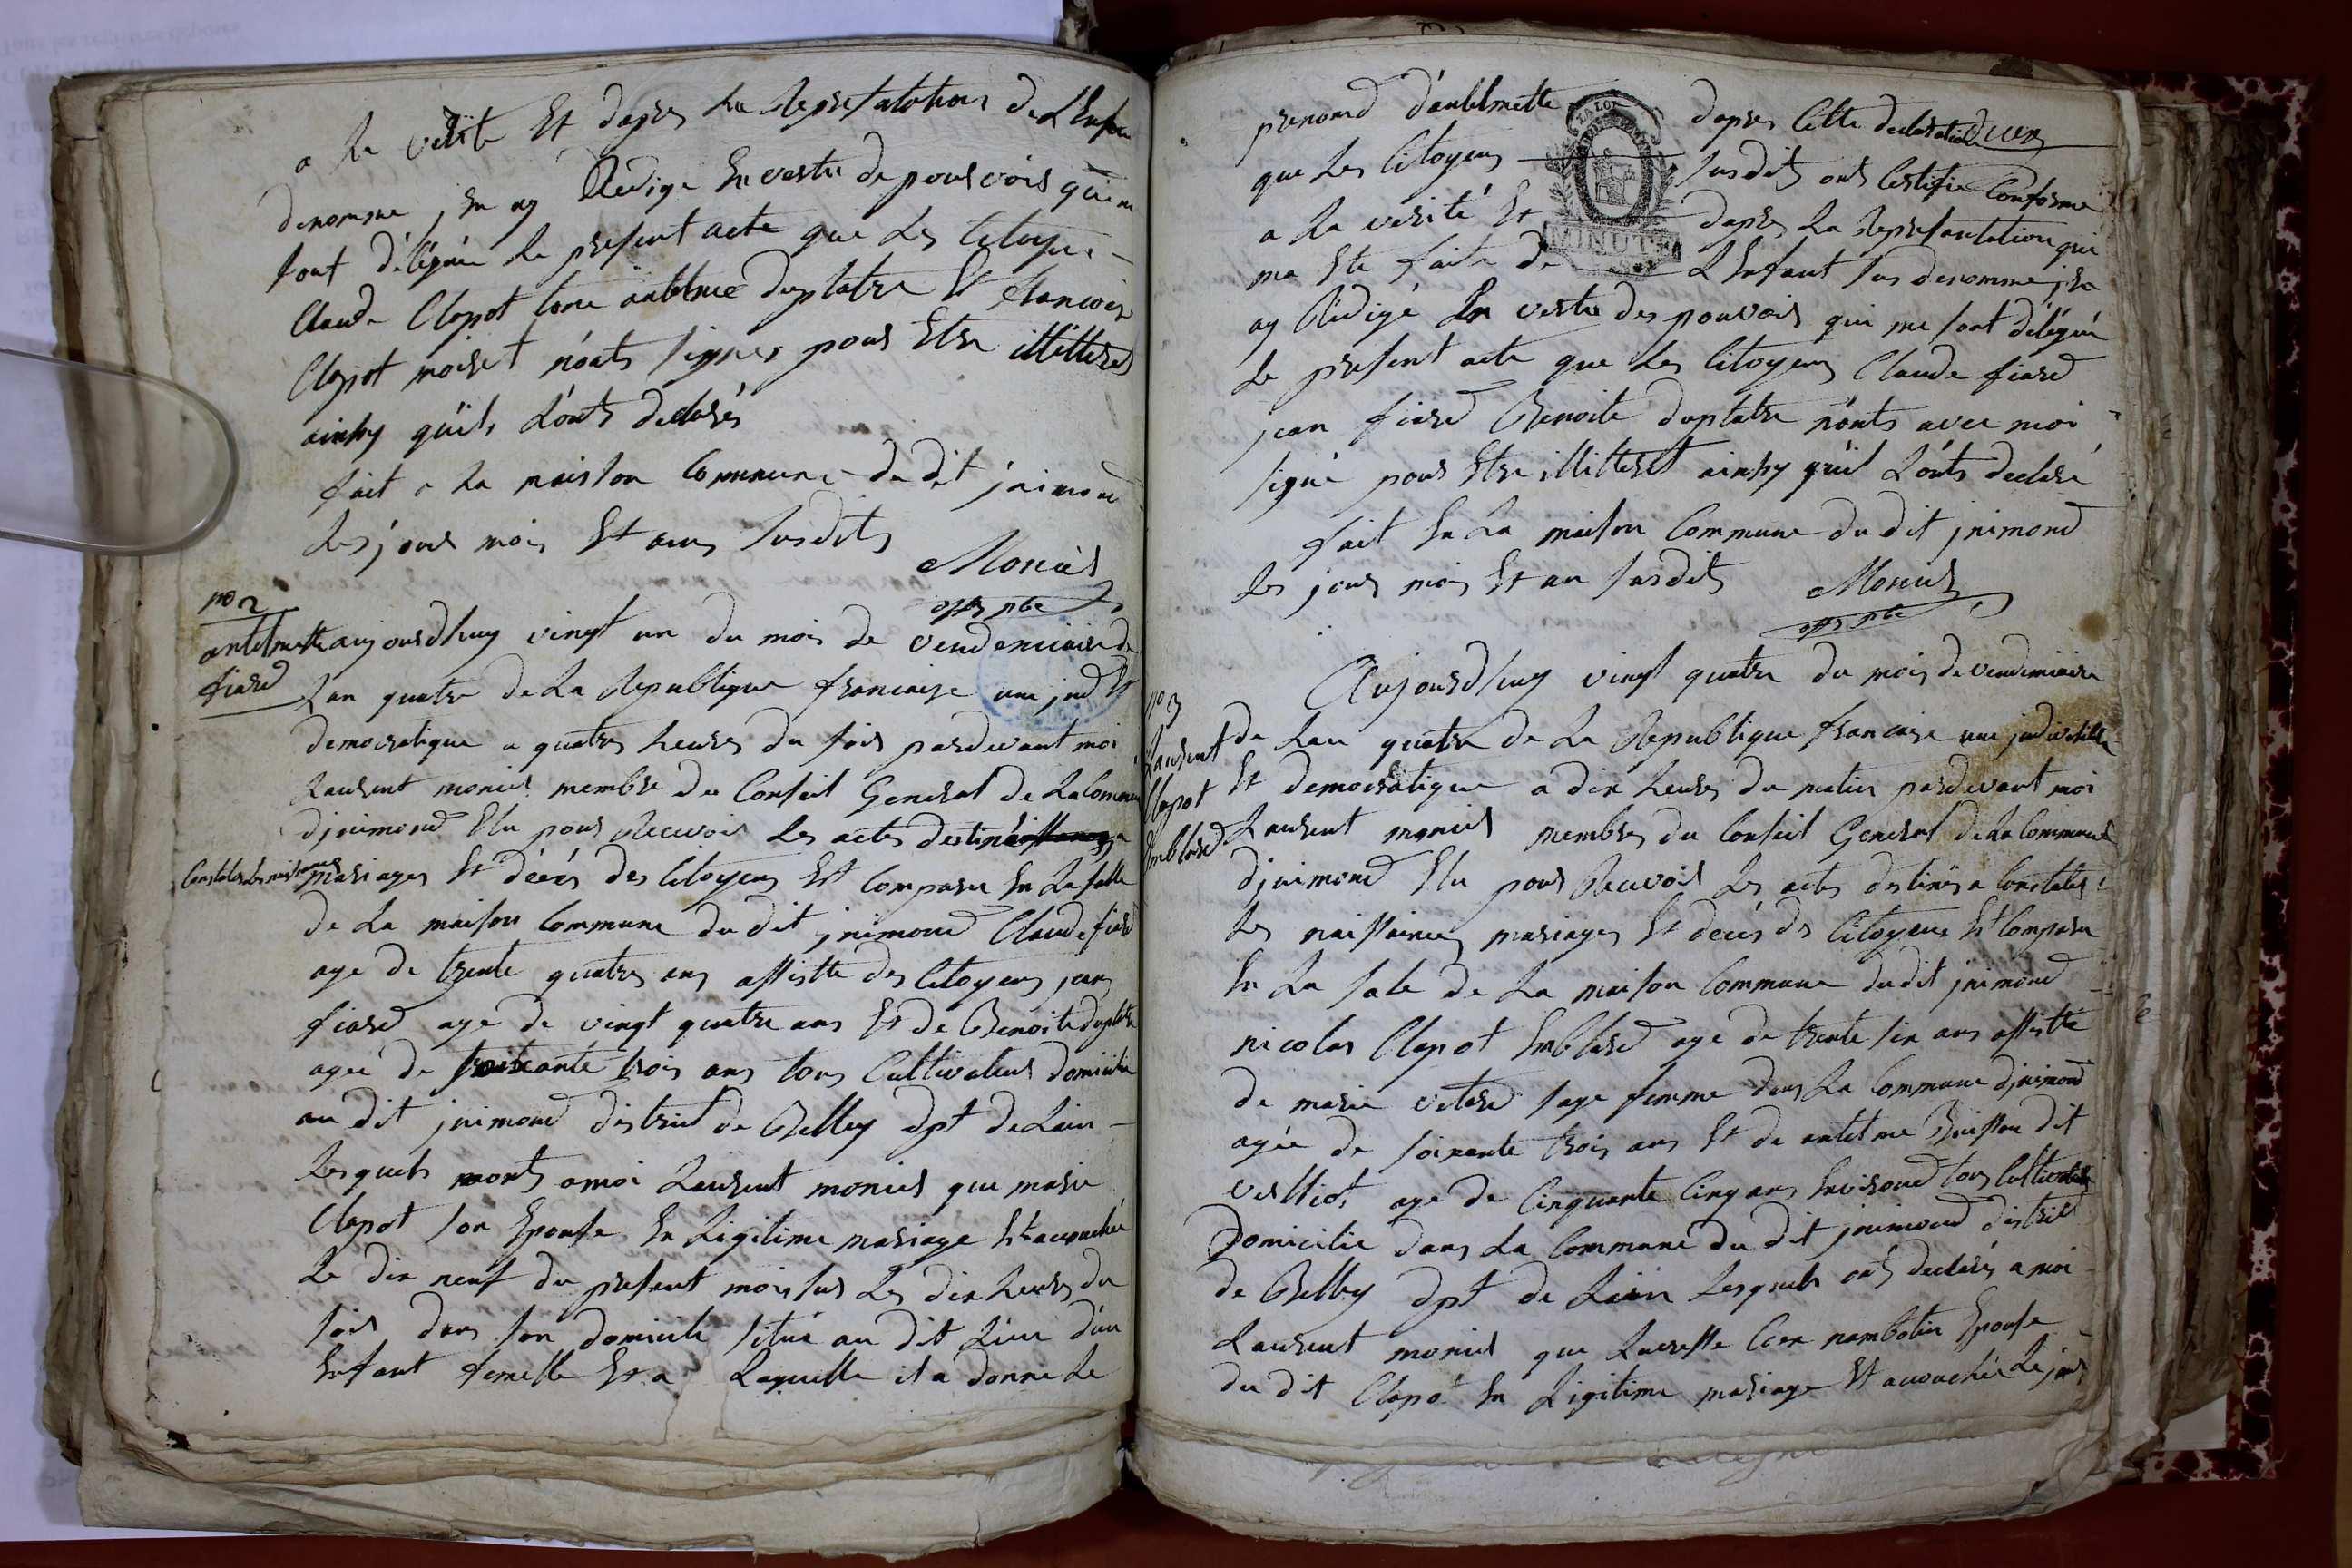 a la verité Et dapres la representations de L'Enfan
denomme j'En ay Redigé En vertu de pouvoirs qui m
sont délégués le present acte que les Citoyens
Claude Clapot tone antelme duplatre Et francoise
Clapot moiret n'onts signes pour Etre illitteres
ainsy qu'ils L'onts declarés
fait a La maison Commune du dit jnimond
Les jours mois Et ans susdits
Moniér
offr pbc
no 2
antelmette
fiard
aujourdhuy vingt un du mois de vendemiaire de
Lan quatre de La Republique francaise une ind Et
democratique a quatres heures du soir pardevant moi
Laurent monier membre du Conseil General de La Commune
djnimond Elu pour Recevoir Les actes destinés a
Constater les naissances
mariages Et décés des Citoyens Est Comparu En La salle
de La maison Commune du dit jnimond Claude fiard
age de trente quatres ans assistte des Citoyens jean
fiard age de vingt quatre ans Et de Benoite duplatre
agée de soixante trois ans tous Cultivateurs domicilie
au dit jnimond district de Belley dpt de Lain
Lesquels m'onts a moi Laurent monier que marie
Clapot son Epouse En Légitime mariage Est accouchée
Le dix neuf du present mois sur Les dix heures du
soir dans son domicile situé au dit Lieu d'un
Enfant femelle Et a Laquelle il a donne Le
prenomd d'antelmette dapres Cette declaration
que Les Citoyens susdits ont Certifie Conforme
a La verité Et dapres La Representation qui
ma Ete faite de L'Enfant sus denomme j'En
ay Rédigé En vertu des pouvoirs qui me sont délégué
Le present acte que Les Citoyens Claude fiard
jean fiard Benoite duplatre n'onts avec moi
signé pour Etre illitteret ainsy qu'il L'onts declaré
fait En La maison Commune du dit jnimond
Les jours mois Et an susdits
Monier
offr pbc
LA LOI
MINUTE
no 3
Laurent
Clapot
Emblard
Aujourdhuy vingt quatre du mois de vendemiaire
de Lan quatre de La Republique francaise une indivisible
Et democratique a dix heures du matin pardevant moi
Laurent monier membres du Conseil General de La Commune
djnimond Elu pour Recevoir Les actes destinés a Constater
Les naissances mariages Et decés des Citoyens Est Comparu
En La sale de La maison Commune dudit jnimond
nicolas Clapot Emblard age de trente six ans assistte
de marie vetard sage femme dans La Commune djnimond
agée de soixante trois ans Et de antelme Buisson dit
velliot age de Cinquante Cinq ans Environd tous Cultivateurs
Domicilie dans La Commune du dit jnimond district
de Belley dpt de Lain Lesquels onts declarés a moi
Laurent monier que Lucresse Cier nambotin Epouse
du dit Clapot En Légitime mariage Est accouchée Le jour